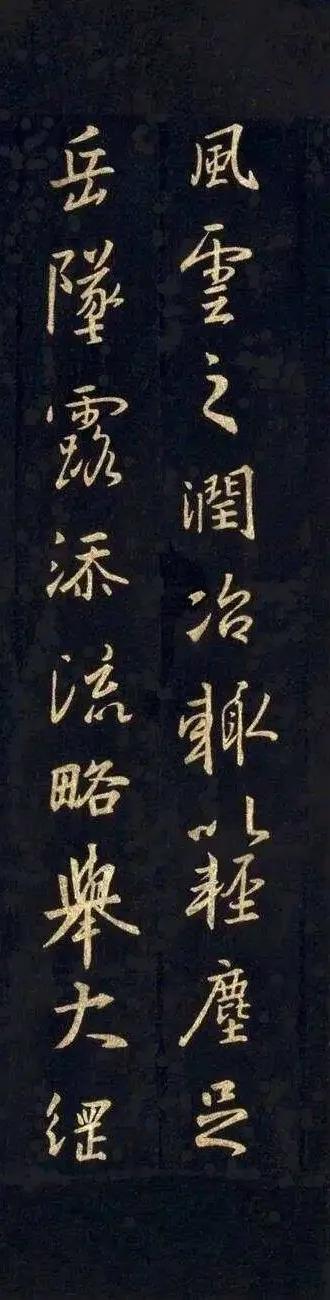 風雲之潤治輒以輕塵足
岳墜露添流略舉大綱